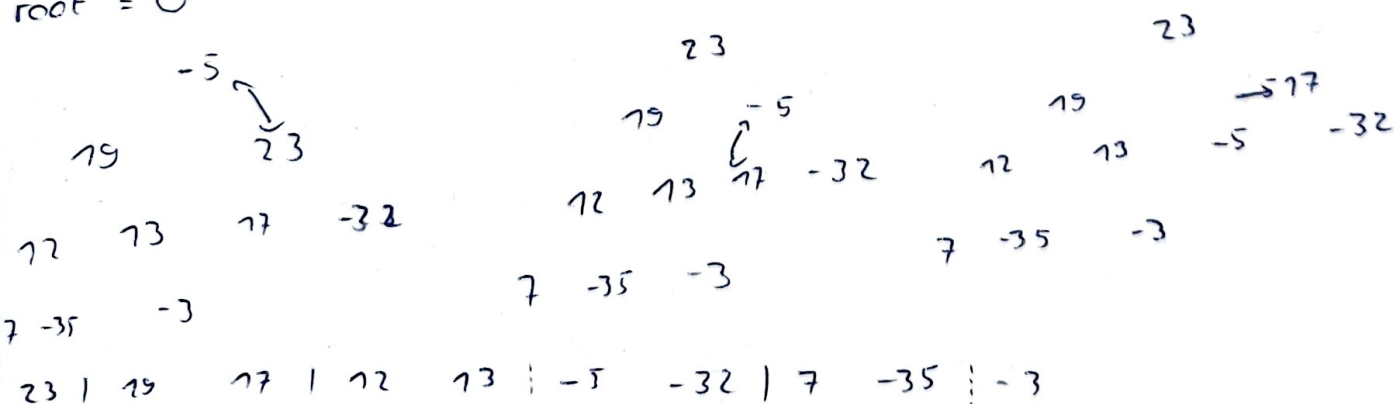 root = 0
-5
19 23
12 13 17 -32
7 -35 -3
23
19 -5
12 13 17 -32
7 -35 -3
23
19 →17
12 13 -5 -32
7 -35 -3
23 | 19 17 | 12 13 ¦ -5 -32 | 7 -35 ¦ -3